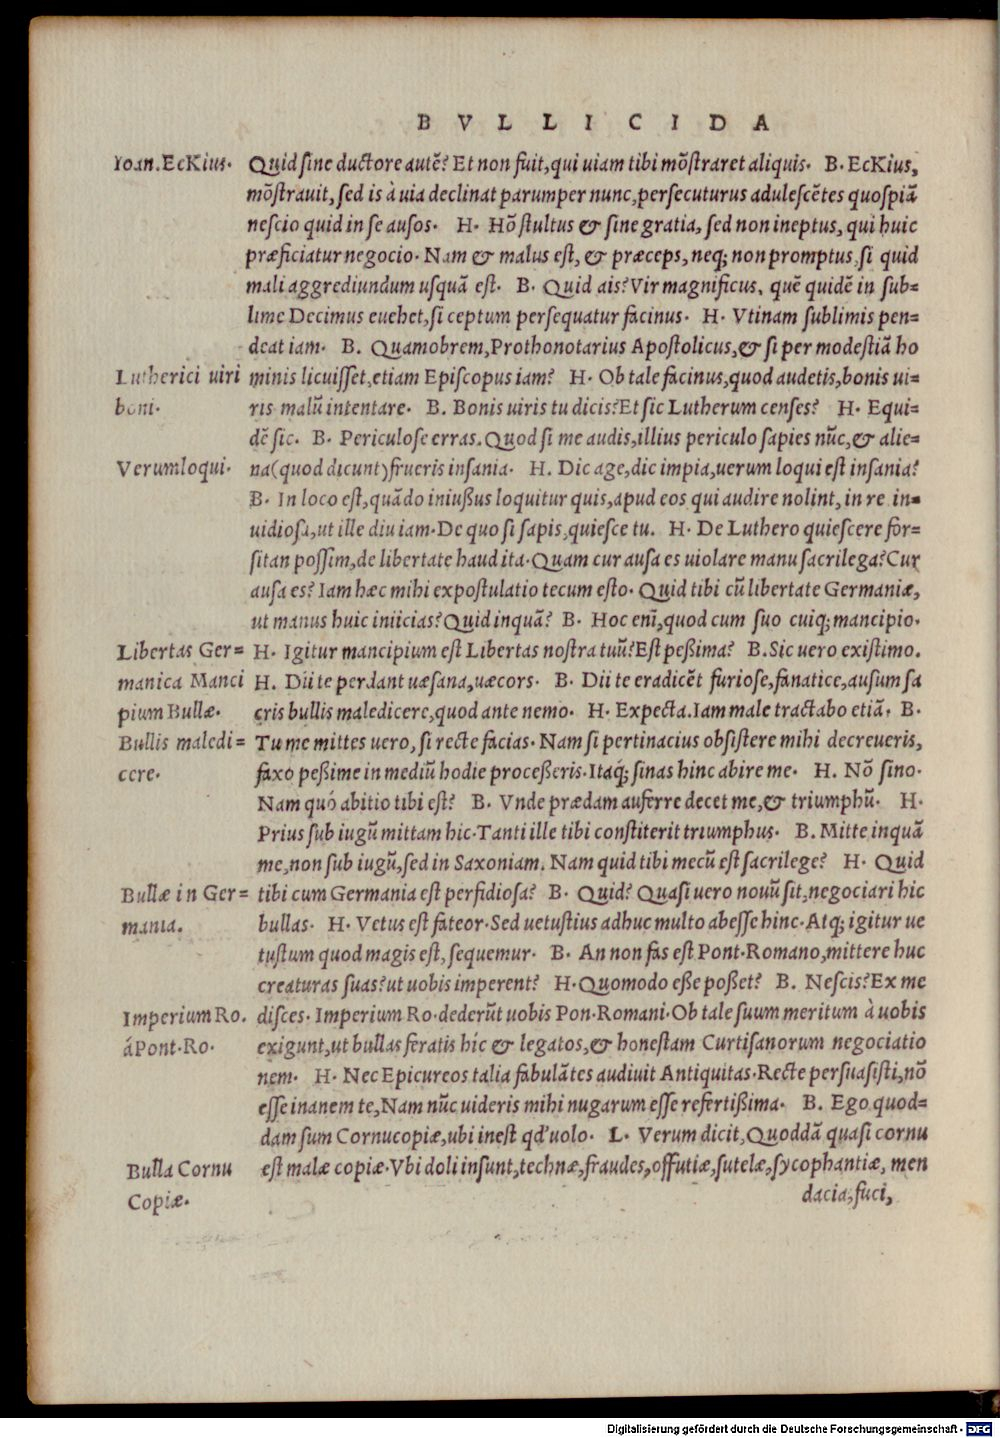 BVLLICIDA
Ioan.EcKius. Quid sine ductore autē? Et non fuit, qui uiam tibi mōstraret aliquis. B. EcKius,
mōstrauit, sed is à uia declinat parumper nunc, persecuturus adulescētes quospiā
nescio quid in se ausos. H. Hō stultus & sine gratia, sed non ineptus, qui huic
præficiatur negocio. Nam & malus est, & præceps, neq; non promptus, si quid
mali aggrediundum usquā est. B. Quid ais? Vir magnificus, quē quidē in sub=
lime Decimus euehet, si ceptum persequatur facinus. H. Vtinam sublimis pen=
deat iam. B. Quamobrem, Prothonotarius Apostolicus, & si per modestiā ho
Lutherici uiri minis licuisset, etiam Episcopus iam? H. Ob tale facinus, quod audetis, bonis ui=
boni. ris malū intentare. B. Bonis uiris tu dicis? Et sic Lutherum censes? H. Equi=
dē sic. B. Periculose erras. Quod si me audis, illius periculo sapies nūc, & alie=
Verum loqui. na (quod dicunt) frueris insania. H. Dic age, dic impia, uerum loqui est insania?
B. In loco est, quādo iniußus loquitur quis, apud eos qui audire nolint, in re in=
uidiosa, ut ille diu iam. De quo si sapis, quiesce tu. H. De Luthero quiescere for=
sitan possim, de libertate haud ita. Quam cur ausa es uiolare manu sacrilega? Cur
ausa es? Iam hæc mihi expostulatio tecum esto. Quid tibi cū libertate Germaniæ,
ut manus huic iniicias? Quid inquā? B. Hoc enī, quod cum suo cuiq; mancipio.
Libertas Ger= H. Igitur mancipium est Libertas nostra tuū? Est peßima? B. Sic uero existimo.
manica Manci H. Dii te perdant uæsana, uæcors. B. Dii te eradicēt furiose, fanatice, ausum sa
pium Bullæ. cris bullis maledicere, quod ante nemo. H. Expecta. Iam male tractabo etiā. B.
Bullis maledi= Tu me mittes uero, si recte facias. Nam si pertinacius obsistere mihi decreueris,
cere. faxo peßime in mediū hodie proceßeris. Itaq; sinas hinc abire me. H. Nō sino.
Nam quó abitio tibi est? B. Vnde prædam auferre decet me, & triumphū. H.
Prius sub iugū mittam hic. Tanti ille tibi constiterit triumphus. B. Mitte inquā
me, non sub iugū, sed in Saxoniam. Nam quid tibi mecū est sacrilege? H. Quid
Bullæ in Ger= tibi cum Germania est perfidiosa? B. Quid? Quasi uero nouū sit, negociari hic
mania. bullas. H. Vetus est fateor. Sed uetustius adhuc multo abesse hinc. Atq; igitur ue
tustum quod magis est, sequemur. B. An non fas est Pont. Romano, mittere huc
creaturas suas? ut uobis imperent? H. Quomodo eße poßet? B. Nescis? Ex me
Imperium Ro. disces. Imperium Ro. dederūt uobis Pon. Romani. Ob tale suum meritum à uobis
á Pont. Ro. exigunt, ut bullas feratis hic & legatos, & honestam Curtisanorum negociatio
nem. H. Nec Epicureos talia fabulātes audiuit Antiquitas. Recte persuasisti, nō
esse inanem te, Nam nūc uideris mihi nugarum esse refertißima. B. Ego quod=
dam sum Cornucopiæ, ubi inest qd' uolo. L. Verum dicit, Quoddā quasi cornu
Bulla Cornu est malæ copiæ. Vbi doli insunt, technæ, fraudes, offutiæ, sutelæ, sycophantiæ, men
Copiæ. dacia, fuci,
Digitalisierung gefördert durch die Deutsche Forschungsgemeinschaft - DFG